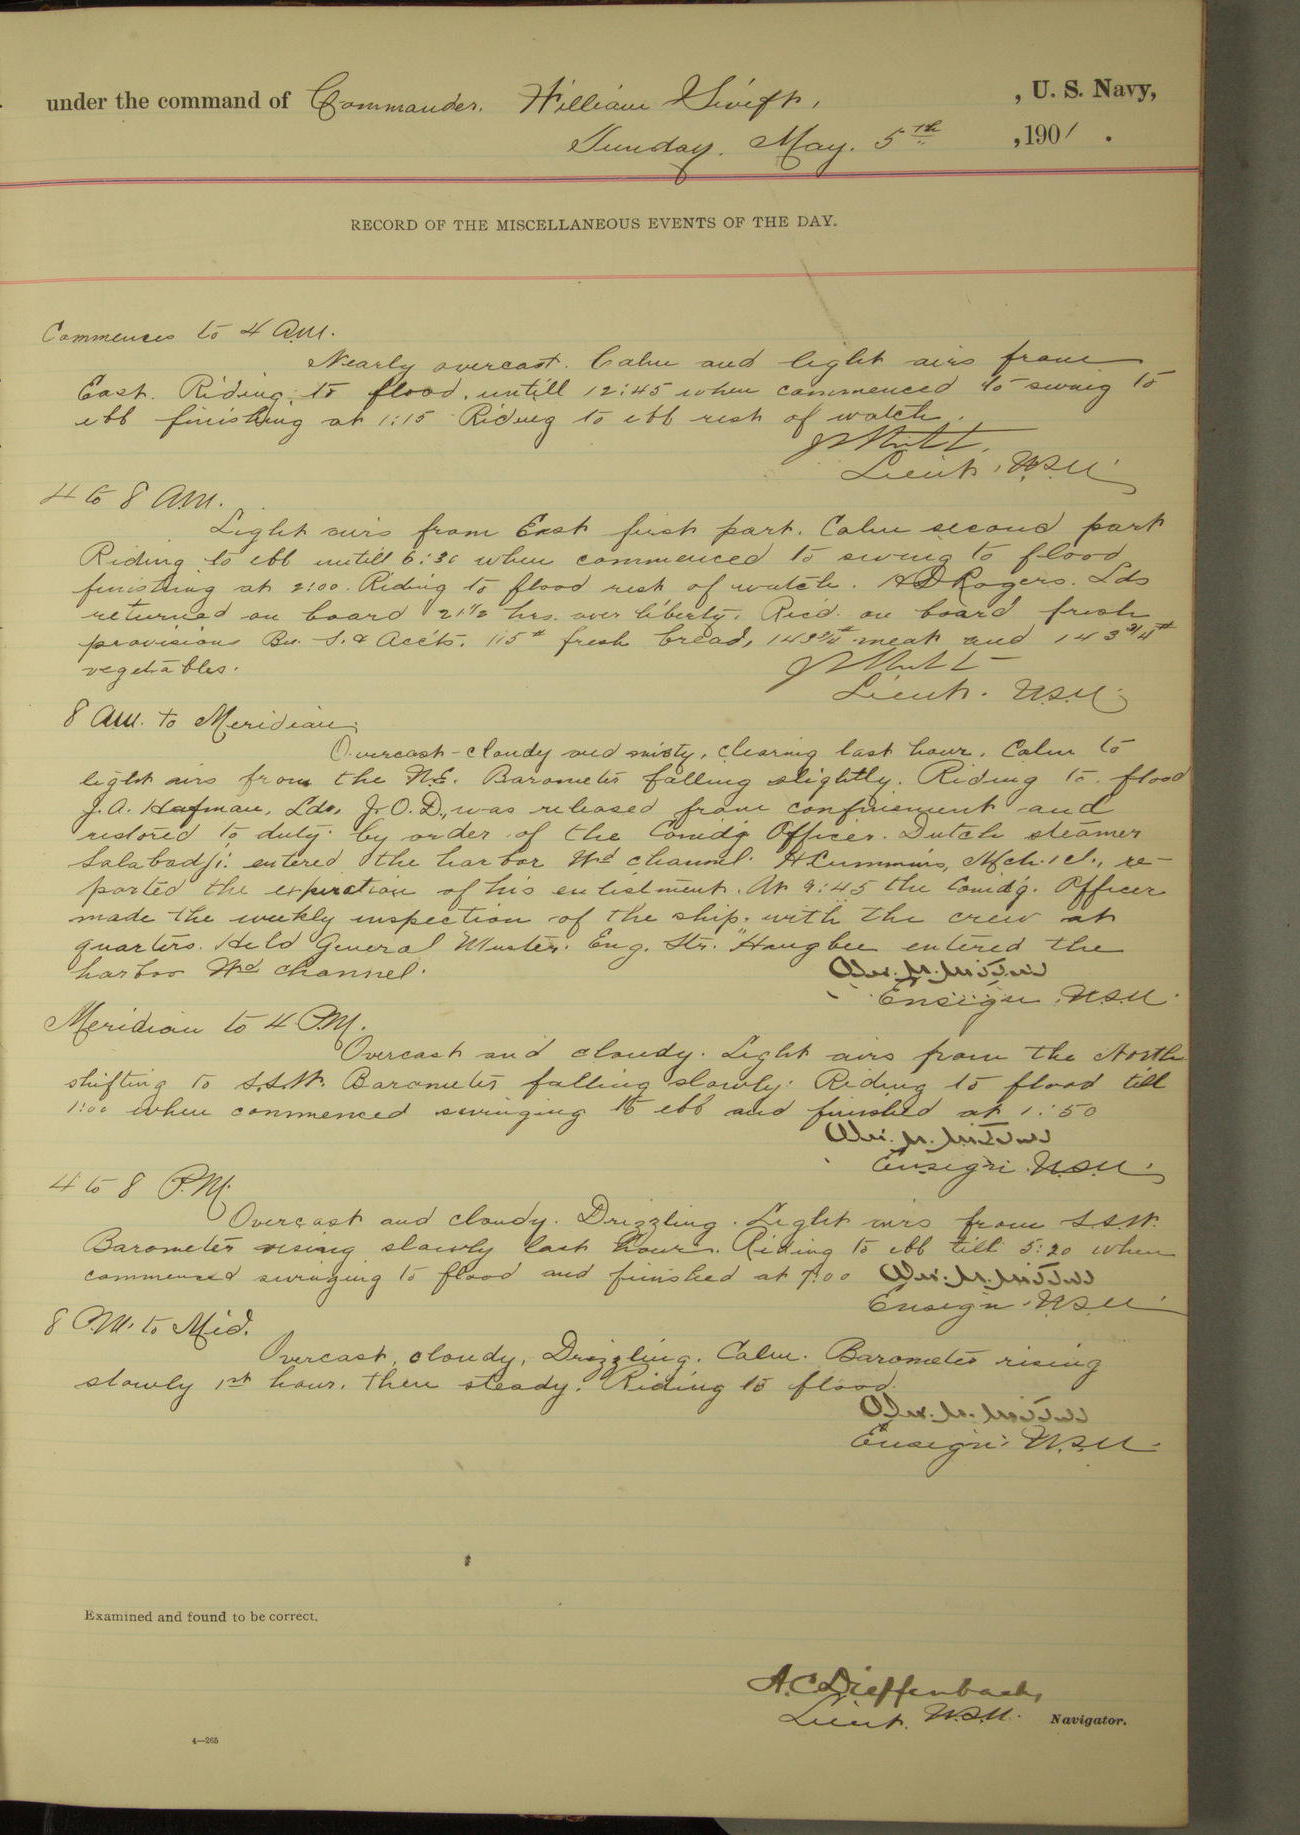 under the command of Commander. William Swift, , U. S. Navy,
Sunday. May. 5th , 1901 .
RECORD OF THE MISCELLANEOUS EVENTS OF THE DAY.
Commences to 4 A.M.
Nearly overcast. Calm and light airs from
East. Riding to flood, untill 12:45 when commenced to swing to
ebb finishing at 1:15 Riding to ebb rest of watch.
Lieut. U.S.N.
4 to 8 A.M.
Light airs from East first part. Calm second part
Riding to ebb untill 6:30 when commenced to swing to flood
finishing at 2:00. Riding to flood rest of watch. A D Rogers. Lds
returned on board 21 1/2 hrs. over liberty. Rec'd. on board fresh
provisions Bu. S. & Acc'ts. 115# fresh bread, 143 3/4# meat and 143 3/4#
vegetables.
Lieut. U.S.N.
8 A.M. to Meridian.
Overcast - cloudy and misty, clearing last hour. Calm to
light airs from the N.E. Barometer falling slightly. Riding to flood
J. A. Hafman, Lds, J.O.D., was released from confinement and
restored to duty by order of the Comd'g Officer. Dutch steamer
Salabadji entered the harbor Wd channel. H Cummins, Mch. 1 cl., re-
ported the expiration of his enlistment. At 9:45 the Comd'g. Officer
made the weekly inspection of the ship. with the crew at
quarters. Held General Muster. Eng. Str. "Hangbee entered the
harbor Wd channel.
Ensign U.S.N.
Meridian to 4 P.M.
Overcast and cloudy. Light airs from the North
shifting to S.S.W. Barometer falling slowly. Riding to flood till
1:00 when commenced swinging to ebb and finished at 1:50
Ensign. U.S.N.
4 to 8 P.M.
Overcast and cloudy. Drizzling. Light airs from S.S.W.
Barometer rising slowly last hour. Riding to ebb till 5:20 when
commenced swinging to flood and finished at 7:00
Ensign. U.S.N.
8 P.M. to Mid.
Overcast, cloudy, Drizzling. Calm. Barometer rising
slowly 1st hour, then steady. Riding to flood.
Ensign. U.S.N.
Examined and found to be correct.
A.C. Dieffenbach,
Lieut. U.S.N. Navigator.
4—265